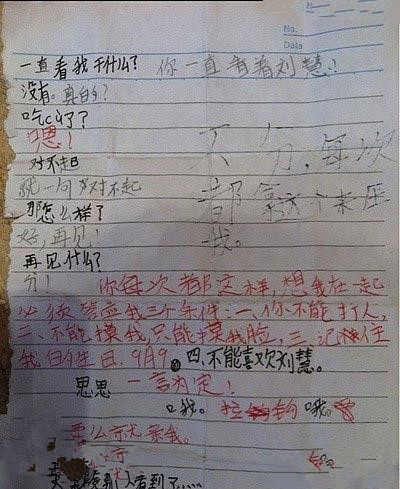 No.
Date
一直看我干什么? 你一直看着刘慧!
没有。真的?
吃cu了?
嗯!
对不起
就一句对不起
那怎么样?
好,再见!
再见什么?
分!
不分,每次
都拿这个来压
我。
你每次都这样,想我在一起
必须答应我三个条件:一、你不能打人,
二、不能摸我,只能摸我脸,三、记住
我的生日.9月9 四.不能喜欢刘慧。
思思 一言为定!
口我。拉钩 哦。
要么就亲我。
别人看到了.....